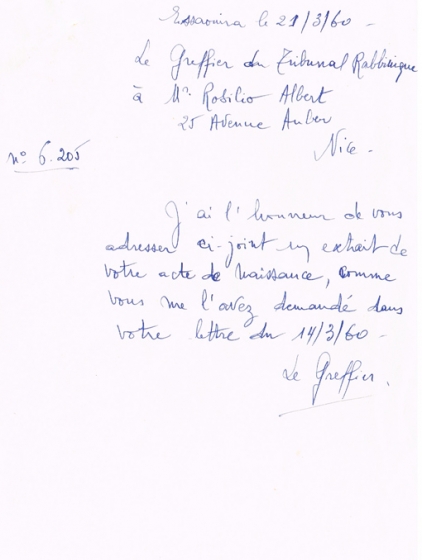 Essaouira le 21/3/60 -
Le Greffier du Tribunal Rabbinique
à Mr. Rosilio Albert
25 Avenue Auber
Nice -
n° 6.205
J'ai l'honneur de vous
adresser ci-joint un extrait de
votre acte de naissance, comme
vous me l'avez demandé dans
votre lettre du 14/3/60 -
Le Greffier.